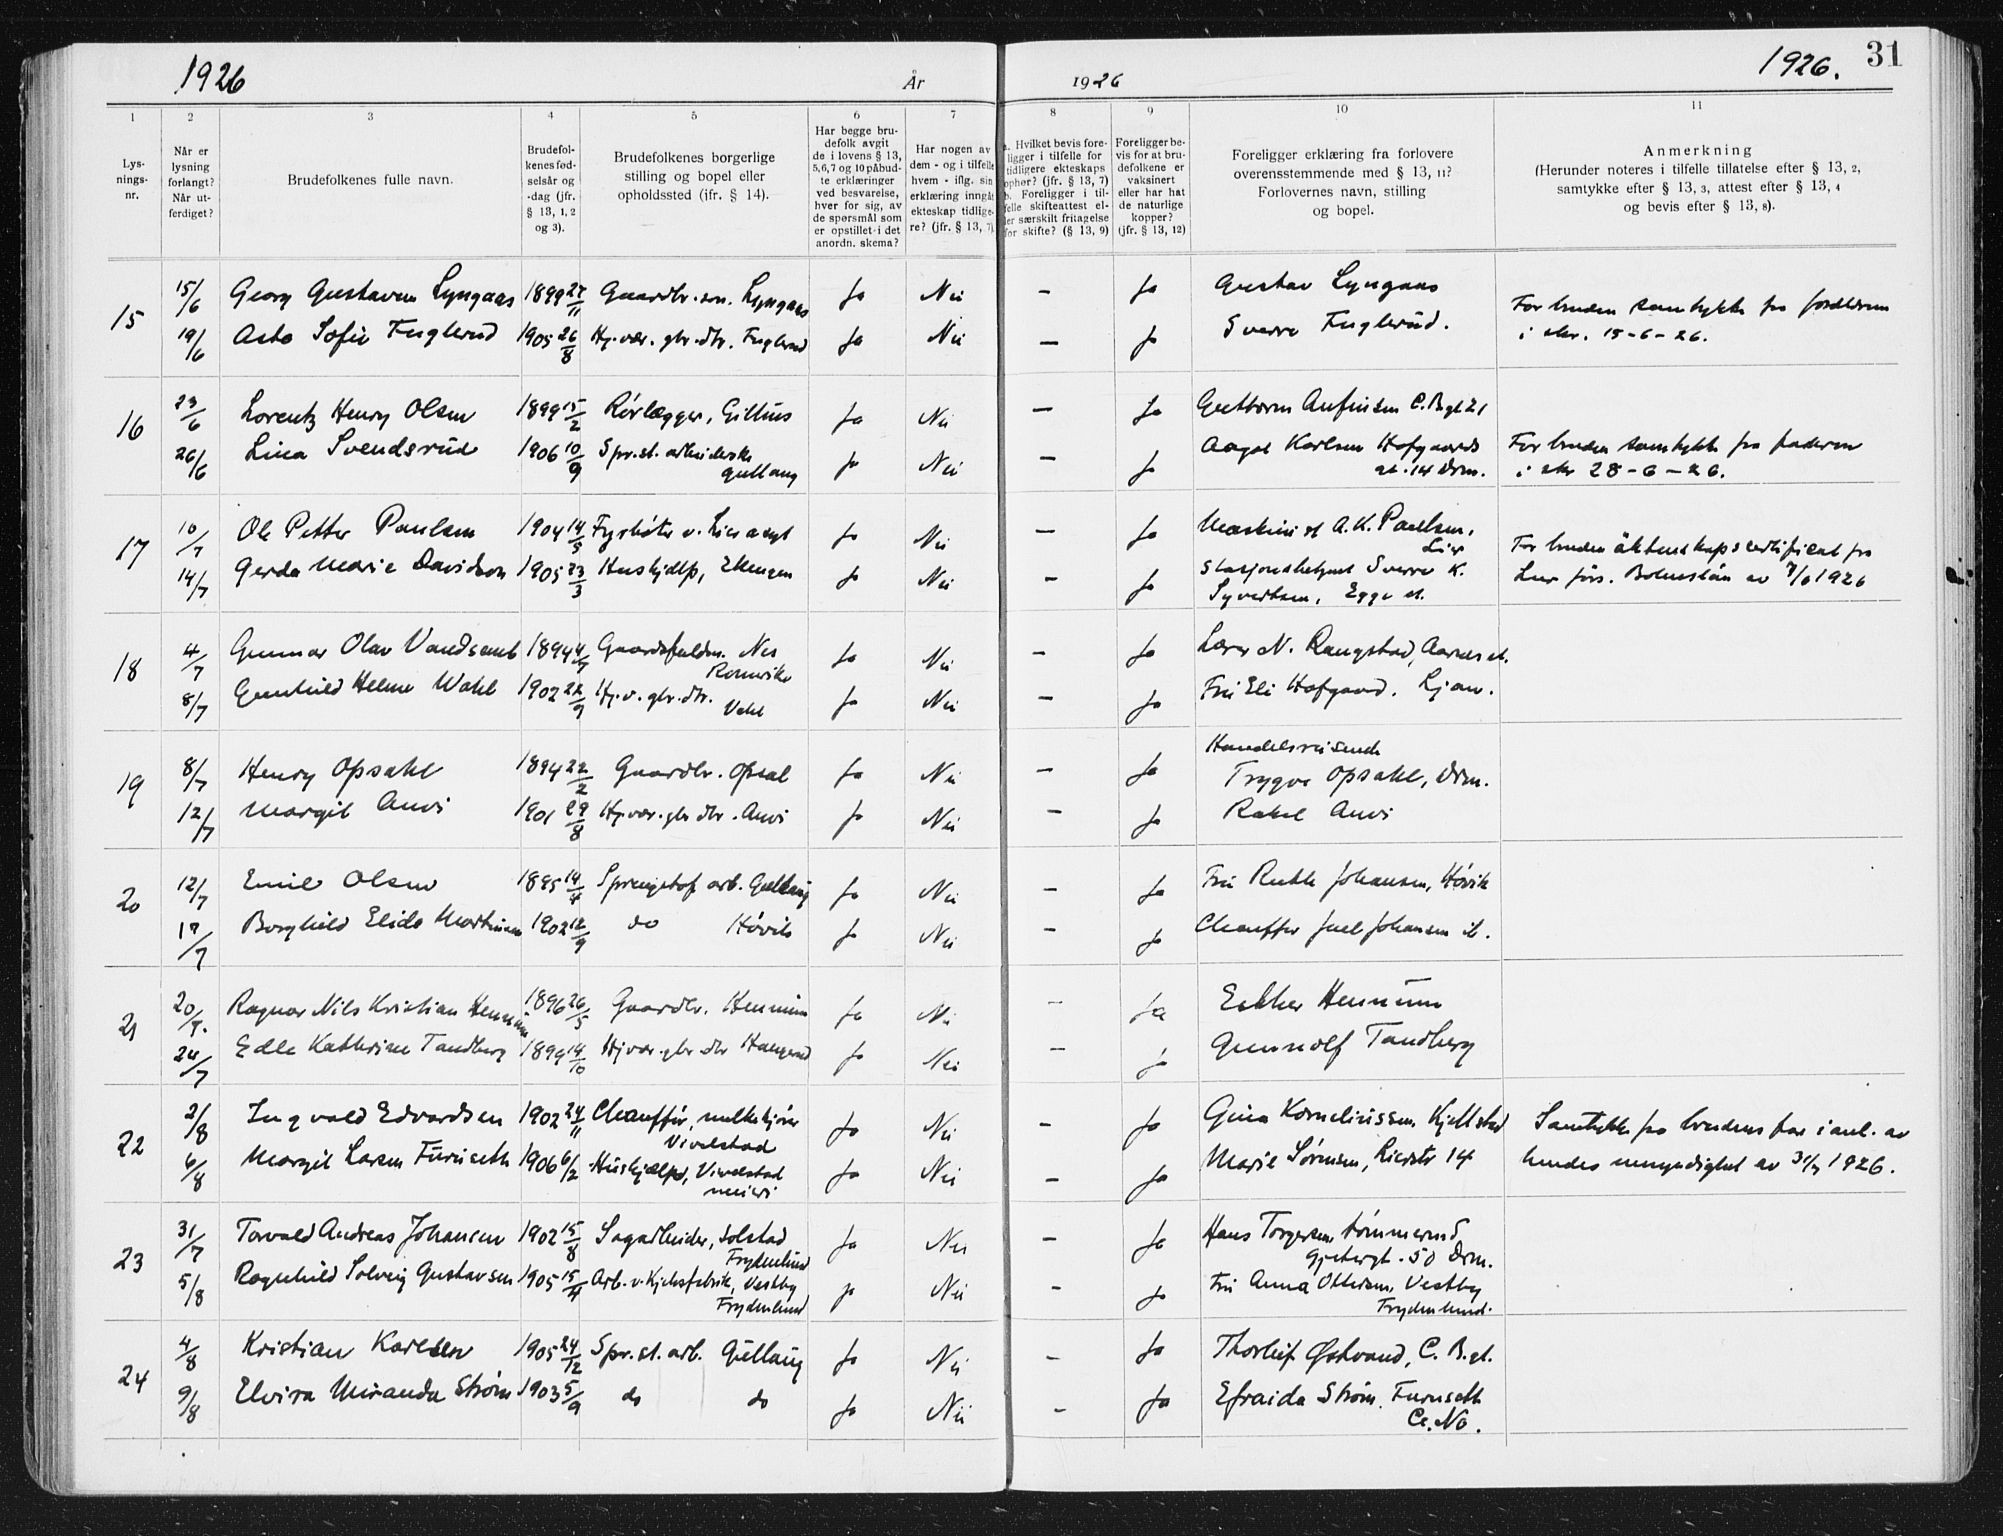 1926
År
1926
1926.
31
1
2
3
4
5
6
7
8
9
10
11
Lys-
nings-
nr.
Når er
lysning
forlangt?
Når ut-
ferdiget?
Brudefolkenes fulle navn.
Brudefol-
kenes fød-
selsår og
-dag (jfr.
§ 13, 1, 2
og 3).
Brudefolkenes borgerlige
stilling og bopel eller
opholdssted (ifr. § 14).
Har begge bru-
defolk avgit
de i lovens § 13,
5,6,7 og 10 påbud-
te erklæringer
ved besvarelse,
hver for sig, av
de spørsmål som
er opstillet i det
anordn. skema?
Har nogen av
dem - og i tilfelle
hvem - iflg. sin
erklæring inngåt
ekteskap tidlige-
re? (jfr. § 13, 7)
a. Hvilket bevis fore-
ligger i tilfelle for
tidligere ekteskaps
ophør? (jfr. § 13, 7)
b. Foreligger i til-
felle skifteattest el-
ler særskilt fritagelse
for skifte? (§ 13, 9)
Foreligger be-
vis for at bru-
defolkene er
vaksinert
eller har hat
de naturlige
kopper?
(jfr. § 13, 12)
Foreligger erklæring fra forlovere
overensstemmende med § 13, 11?
Forlovernes navn, stilling
og bopel.
Anmerkning
(Herunder noteres i tilfelle tillatelse efter § 13, 2,
samtykke efter § 13, 3, attest efter § 13, 4
og bevis efter § 13, 8).
15
15/6 Georg Gustavsen Lyngaas 1899 27/11 Gaardbr. søn. Lyngaas Ja Nei — Ja Gustav Lyngaas
19/6 Asta Sofie Fuglerud 1905 26/8 Hj. vær. gbr. dtr. Fuglerud Ja Nei — Ja Sverre Fuglerud.
For bruden samtykke fra forældrene
i skr. 15-6-26.
16
23/6 Lorentz Henry Olsen 1899 15/2 Rørlægger, Gilhus Ja Nei — Ja Guttorm Anfinsen C. Bgt 21
26/6 Lina Svendsrud 1906 10/9 Spr.st. arbeiderske Ja Nei — Ja Aagot Karlsen Hofgaards
gullaug
gt. 14 Drm.
For bruden samtykke fra faderen
i skr 28-6-26.
17
10/7 Ole Petter Paulsen 1904 14/5 Fyrbøter v. Lier asyl Ja Nei — Ja Maskinist A.K. Paulsen,
Lier
14/7 Gerda Marie Davidson 1905 23/3 Hushjelp, Ja Nei — Ja Stasjonsbetjent Sverre K.
Syvertsen, Egge st.
For bruden äktenskapscertifikat fra
Lur förs. Bohuslän av 7/6 1926
18
4/7 Gunnar Olav Vandsemb 1894 4/7 Gaardsfuldm. Nes Ja Nei — Ja Lærer N. Rangstad, Aarnes st.
Romerike
8/7 Gunhild Helene Wahl 1902 22/9 Hj. v. gbr. dtr. Ja Nei — Ja Fru Eli Hofgaard. Ljan.
Vahl
19
8/7 Henry Opsahl 1894 22/2 Gaardbr. Opsal Ja Nei — Ja Handelsreisende
Trygve Opsahl, Drm.
12/7 Margit Auvi 1901 29/8 Hj. vær. gbr dtr. Auvi Ja Nei — Ja Rakel Auvi
20
12/7 Emil Olsen 1895 14/4 Sprengstof arb. Gullaug Ja Nei — Ja Fru Ruth Johansen, Høvik
17/7 Borghild Elida Martinsen 1902 12/9 do Høvik Ja Nei — Ja Chauffør Juel Johansen st.
21
20/7. Ragnar Nils Kristian Hennum 1896 26/5 Gaardbr. Hennum Ja Nei — Ja Esther Hennum
24/7 Edle Kathrine Tandberg 1899 14/10 Hj vær. gbr dtr Haugerud Ja Nei — Ja Gunnulf Tandberg
22
2/8 Ingvald Edvardsen 1902 24/11 Chauffør, melkekjører Ja Nei — Ja Gina Korneliussen Kjellstad
Vivelstad
6/8 Margit Larsen Furuseth 1906 6/2 Hushjælp, Vivelstad Ja Nei — Ja Marie Sørensen, Lierstr 14
meieri
Samtykke fra brudens far i anl. av
hendes umyndighet av 31/7 1926.
23
31/7 Torvald Andreas Johansen 1902 15/8 Sagarbeider, Solstad Ja Nei — Ja Hans Torgersen Tømmerud
Frydenlund
Gjetergt. 50 Drm.
5/8 Ragnhild Solveig Gustavsen 1905 15/4 Arb. v. Kjeksfabrik, Vestby Ja Nei — Ja Fru Anna Ottersen, Vestby
Frydenlund
Frydenlund.
24
4/8 Kristian Karlsen 1905 24/12 Spr. st. arb. Gullaug Ja Nei — Ja Thorleif Østvand, C. B. gt.
9/8 Elvira Miranda Strøm 1903 5/9 do do Ja Nei — Ja Efraida Strøm, Furuseth
Ce. No.